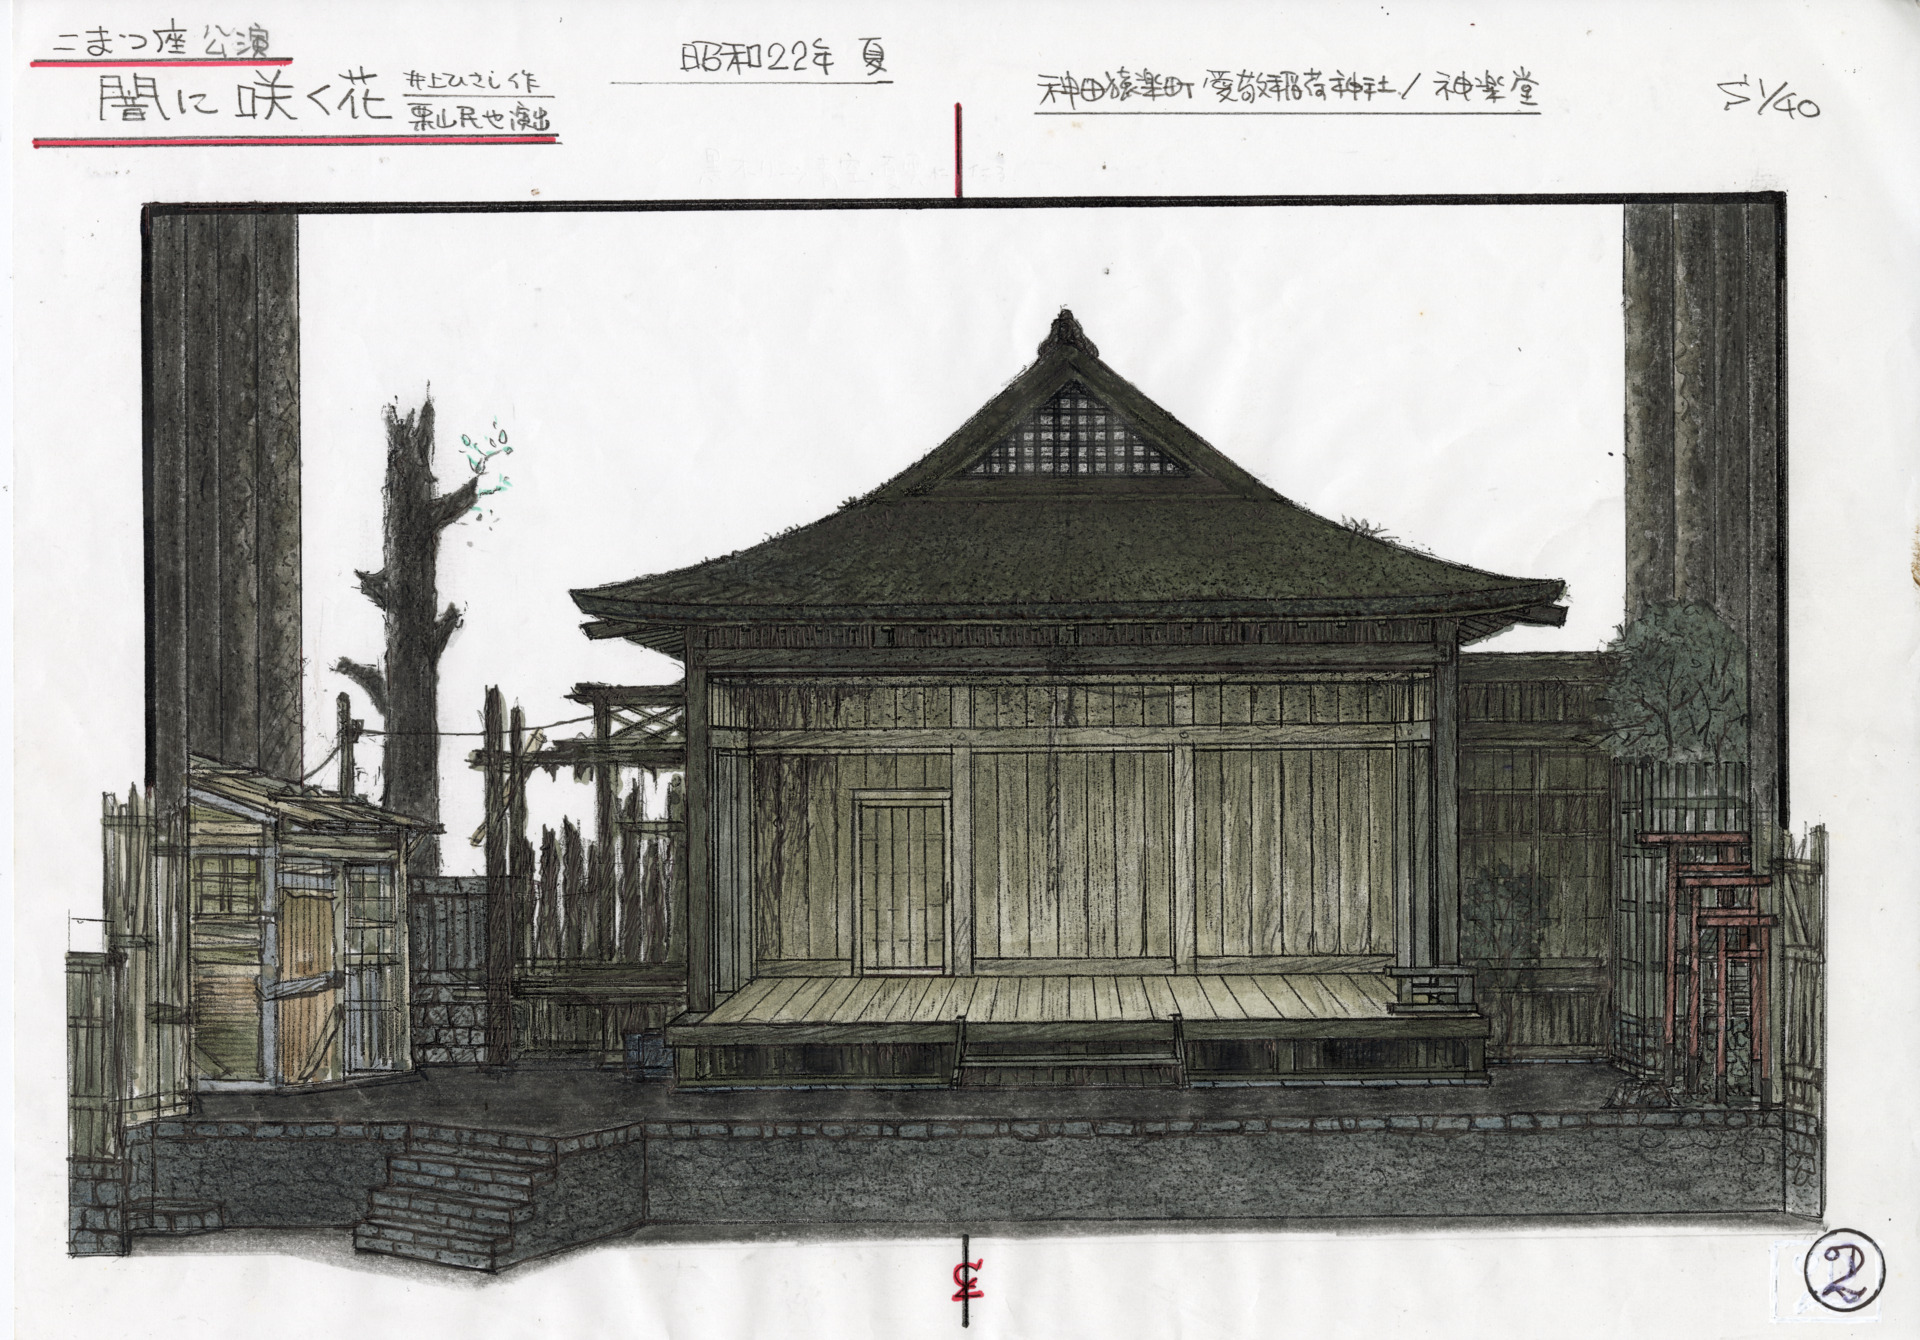 こまつ座 公演
闇に咲く花
井上ひさし 作
栗山民也 演出
昭和22年 夏
神田猿楽町 愛敬稲荷神社/神楽堂
S 1/40
②